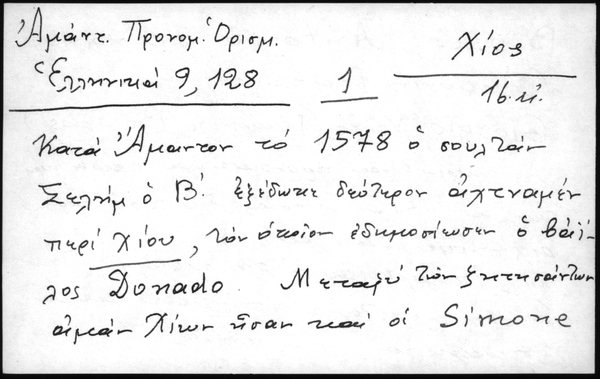 Ἀμάντ. Προνομ. Ὁρισμ.
Χίος
Ἑλληνικά 9, 128
1
16. αἰ.
Κατά Ἄμαντον τό 1578 ὁ σουλτάν
Σελήμ ὁ Β΄. ἐξέδωκε δεύτερον ἀχτιναμέν
περί Χίου, τόν ὁποῖον ἐδημοσίευσεν ὁ βάϊ-
λος Donado. Μεταξύ τῶν ζητησάντων
Χίων ἦσαν καί οἱ Simone